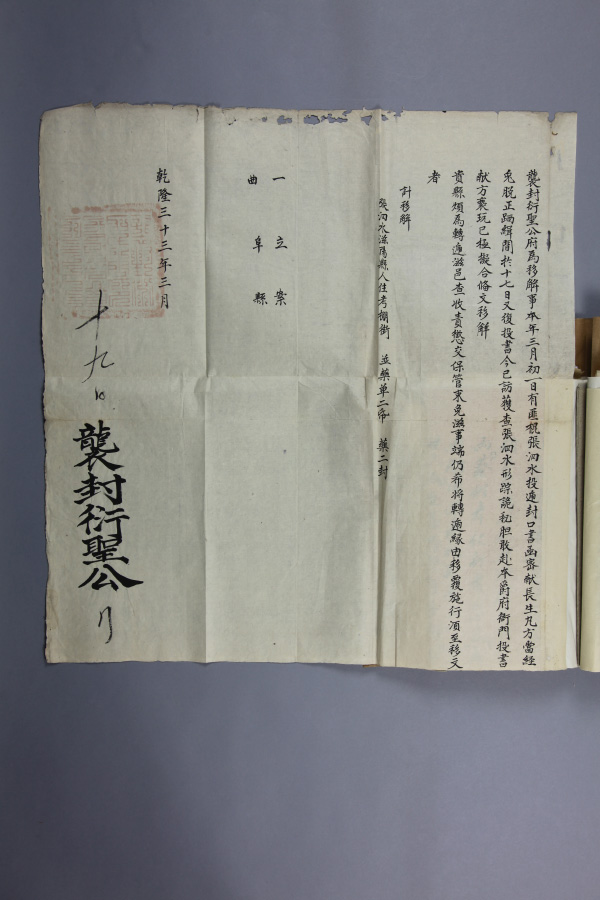 襲封衍聖公府為移解事本年三月初一日有匪棍張泗水投遞封口書函密献長生丸方當經
兎脫正跴緝間於十七日又復投書今已訪獲查張泗水形踪詭秘胆敢赴本爵府衙門投書
献方褻玩已極擬合俻文移解
貴縣煩為轉遞滋邑查收責懲交保管束免滋事端仍希將轉遞緣由移覆施行須至移文
者
計移解
張泗水滋陽縣人住考棚街 並藥单二帋 藥二封
一立案
曲阜縣
乾隆三十三年三月
十九日
襲封衍聖公